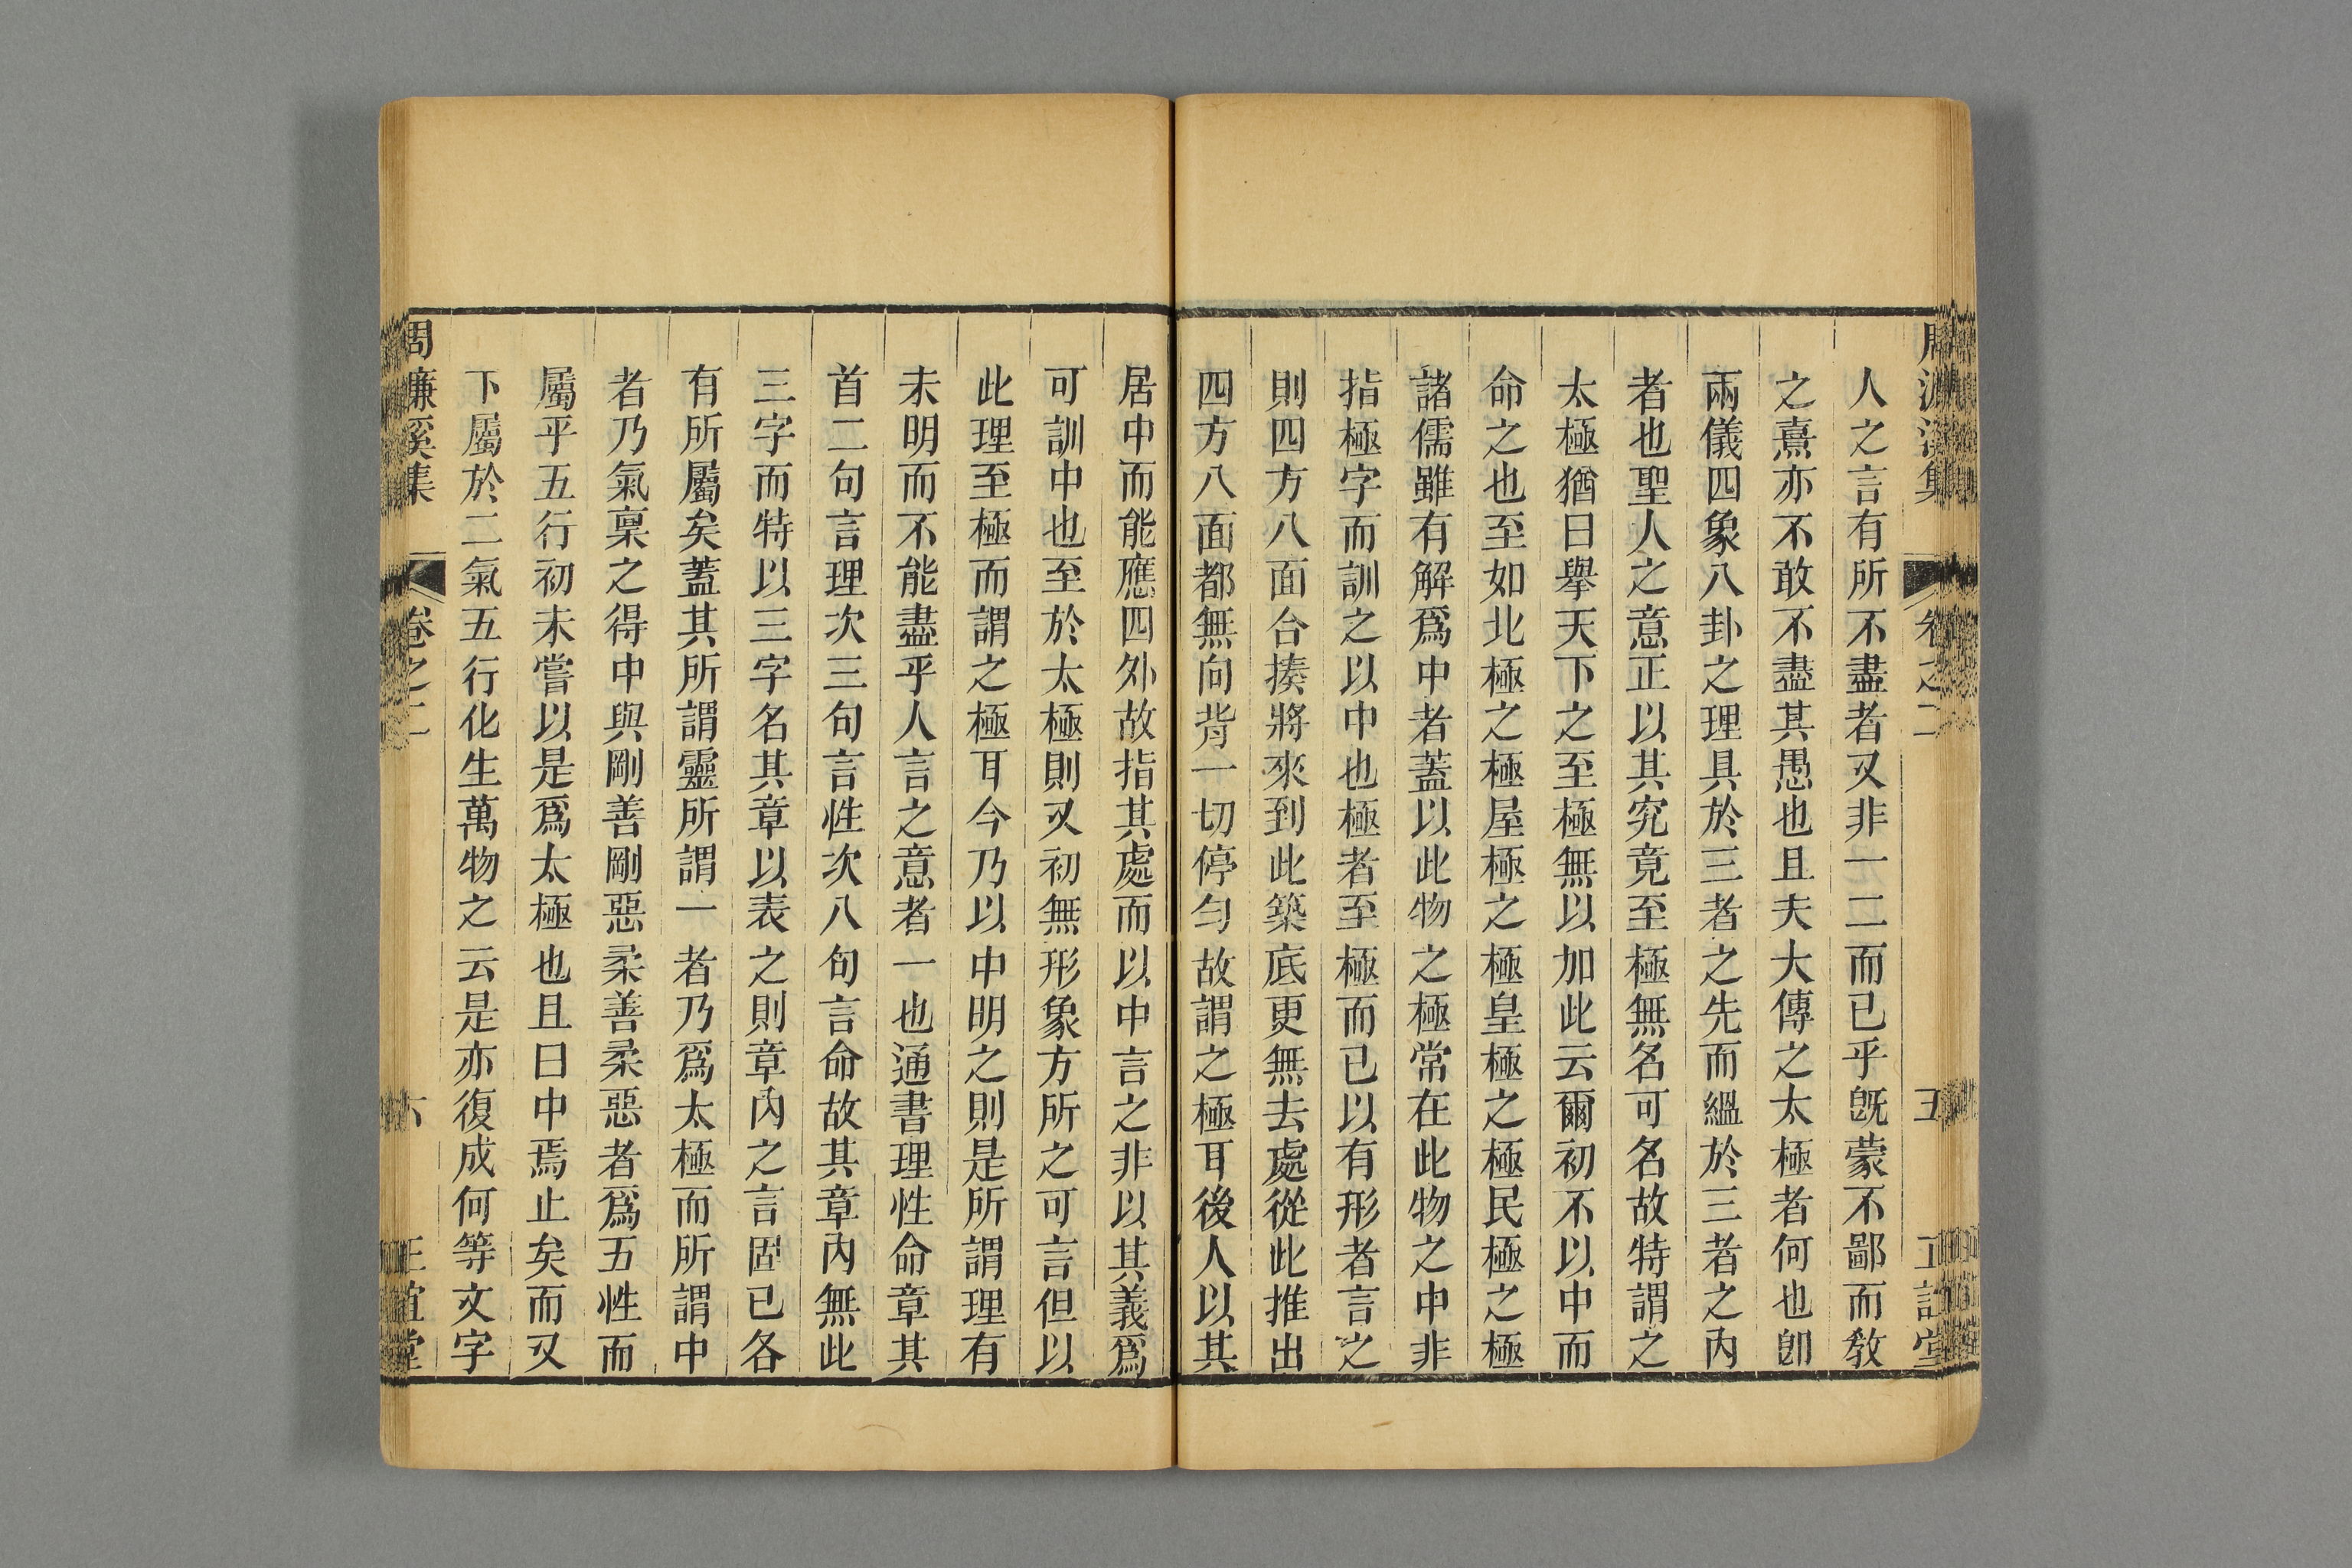 人之言有所不盡者又非一二而已乎旣蒙不鄙而敎
之熹亦不敢不盡其愚也且夫大傳之太極者何也卽
兩儀四象八卦之理具於三者之先而縕於三者之內
者也聖人之意正以其究竟至極無名可名故特謂之
太極猶曰舉天下之至極無以加此云爾初不以中而
命之也至如北極之極屋極之極皇極之極民極之極
諸儒雖有解爲中者蓋以此物之極常在此物之中非
指極字而訓之以中也極者至極而已以有形者言之
則四方八面合揍將來到此築底更無去處從此推出
四方八面都無向背一切停勻故謂之極耳後人以其
居中而能應四外故指其處而以中言之非以其義爲
可訓中也至於太極則又初無形象方所之可言但以
此理至極而謂之極耳今乃以中明之則是所謂理有
未明而不能盡乎人言之意者一也通書理性命章其
首二句言理次三句言性次八句言命故其章內無此
三字而特以三字名其章以表之則章內之言固已各
有所屬矣蓋其所謂靈所謂一者乃爲太極而所謂中
者乃氣稟之得中與剛善剛惡柔善柔惡者爲五性而
屬乎五行初未嘗以是爲太極也且曰中焉止矣而又
下屬於二氣五行化生萬物之云是亦復成何等文字
周濂溪集 卷之二 六 正誼堂